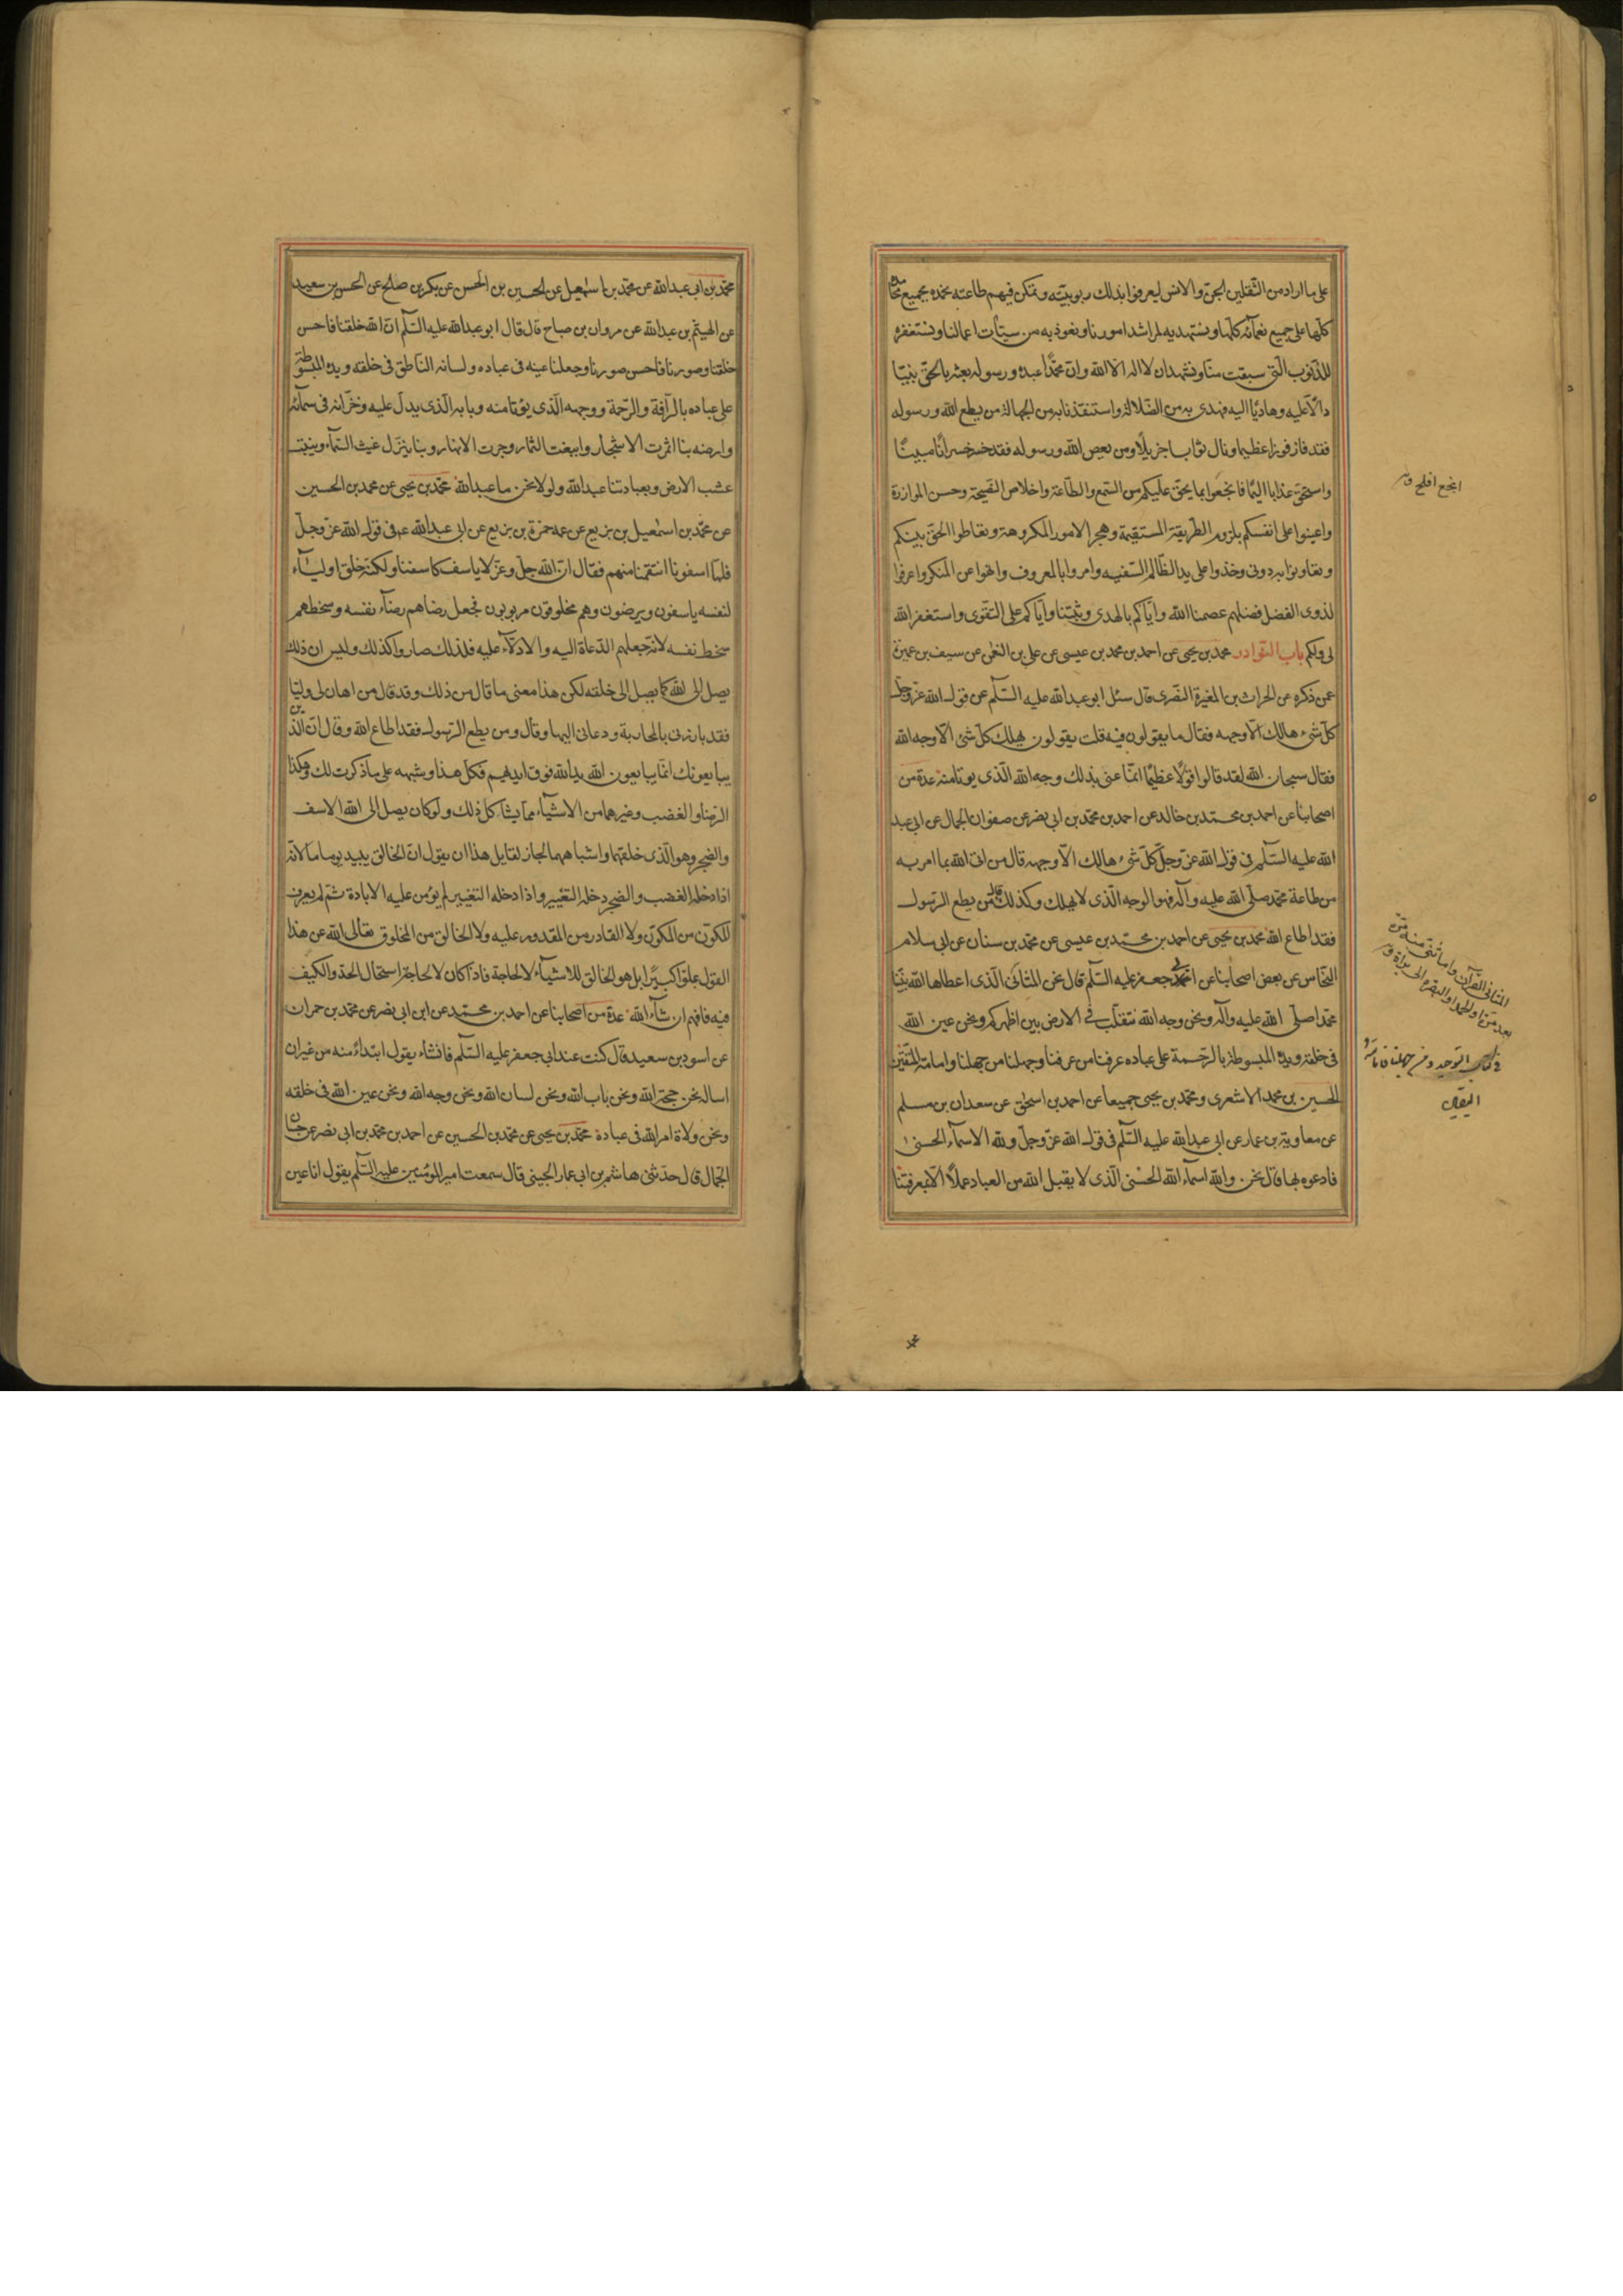 على ما اراد من الثقلين الجن والانس ليعرفوا بذلك ربوبيته وتمكن فيهم طاعته نحمده بجميع محامده
كلها على جميع نعمائه كلها ونستهديه لمراشد امورنا ونعوذ به من سيئات اعمالنا ونستغفره
للذنوب التى سبقت منا ونشهد ان لا اله الا الله وان محمدا عبده ورسوله بعثه بالحق نبيا
دالا عليه وهاديا اليه فهدى به من الضلالة واستنقذنا به من الجهالة من يطع الله ورسوله
فقد فاز فوزا عظيما ونال ثوابا جزيلا ومن يعص الله ورسوله فقد خسر خسرانا مبينا
واستحق عذابا اليما فانجعوا بما يحق عليكم من السمع والطاعة واخلاص النصيحة وحسن الموازرة
واعينوا على انفسكم بلزوم الطريقة المستقيمة وهجر الامور المكروهة وتعاطوا الحق بينكم
وتعاونوا به دونى وخذوا على يد الظالم السفيه وامروا بالمعروف وانهوا عن المنكر واعرفوا
لذوى الفضل فضلهم عصمنا الله واياكم بالهدى وثبتنا واياكم على التقوى واستغفر الله
لى ولكم باب النوادر محمد بن يحيى عن احمد بن محمد بن عيسى عن على بن النعمن عن سيف بن عميرة
عمن ذكره عن الحراث بن المغيرة النصرى قال سئل ابو عبد الله عليه السلم عن قول الله عز وجل
كل شىء هالك الا وجهه فقال ما يقولون فيه قلت يقولون يهلك كل شىء الا وجه الله
فقال سبحان الله لقد قالوا قولا عظيما انما عنى بذلك وجه الله الذى يوتا منه عدة من
اصحابنا عن احمد بن محمد بن خالد عن احمد بن محمد بن ابى نصر عن صفوان الجمال عن ابى عبد
الله عليه السلم فى قول الله عز وجل كل شىء هالك الا وجهه قال من اتى الله بما امر به
من طاعة محمد صلى الله عليه وآله فهو الوجه الذى لا يهلك وكذلك قال من يطع الرسول
فقد اطاع الله محمد بن يحيى عن احمد بن محمد بن عيسى عن محمد بن سنان عن ابى سلام
النحاس عن بعض اصحابنا عن ابى جعفر عليه السلم قال نحن المثانى الذى اعطاها الله نبينا
محمدا صلى الله عليه وآله ونحن وجه الله نتقلب فى الارض بين اظهركم ونحن عين الله
فى خلقه ويده المبسوطة بالرحمة على عباده عرفنا من عرفنا وجهلنا من جهلنا وامامة المتقين
الحسين بن محمد الاشعرى ومحمد بن يحيى جميعا عن احمد بن اسحق عن سعدان بن مسلم
عن معاوية بن عمار عن ابى عبد الله عليه السلم فى قول الله عز وجل ولله الاسماء الحسنى
فادعوه بها قال نحن والله اسماء الله الحسنى الذى لا يقبل الله من العباد عملا الا بمعرفتنا
انجع افلح
المثانى القرآن
فى كتاب التوحيد
محمد بن ابى عبد الله عن محمد بن اسمعيل عن الحسين بن الحسن عن بكر بن صالح عن الحسن بن سعيد
عن الهيثم بن عبد الله عن مروان بن صباح قال قال ابو عبد الله عليه السلم ان الله خلقنا فاحسن
خلقنا وصورنا فاحسن صورنا وجعلنا عينه فى عباده ولسانه الناطق فى خلقه ويده المبسوطة
على عباده بالرآفة والرحمة ووجهه الذى يوتا منه وبابه الذى يدل عليه وخزانه فى سمائه
وارضه بنا اثمرت الاشجار وايعنت الثمار وجرت الانهار وبنا ينزل غيث السماء وينبت
عشب الارض وبعبادتنا عبد الله ولولا نحن ما عبد الله محمد بن يحيى عن محمد بن الحسين
عن محمد بن اسمعيل بن بزيع عن عمه حمزة بن بزيع عن ابى عبد الله ع فى قول الله عز وجل
فلما اسفونا انتقمنا منهم فقال ان الله جل وعز لا ياسف كاسفنا ولكنه خلق اولياء
لنفسه ياسفون ويرضون وهم مخلوقون مربوبون فجعل رضاهم رضاء نفسه وسخطهم
سخط نفسه لانه جعلهم الدعاة اليه والادلاء عليه فلذلك صاروا كذلك وليس ان ذلك
يصل الى الله كما يصل الى خلقه لكن هذا معنى ما قال من ذلك وقد قال من اهان لى وليا
فقد بارزنى بالمحاربة ودعانى اليها وقال ومن يطع الرسول فقد اطاع الله وقال ان الذين
يبايعونك انما يبايعون الله يد الله فوق ايديهم فكل هذا وشبهه على ما ذكرت لك وهكذا
الرضا والغضب وغيرهما من الاشياء مما يشاكل ذلك ولو كان يصل الى الله الاسف
والضجر وهو الذى خلقهما واشباههما لجاز لقايل هذا ان يقول ان الخالق يبيد يوما ما لانه
اذا دخله الغضب والضجر دخله التغيير واذا دخله التغيير لم يؤمن عليه الابادة ثم لم يعرف
المكون من المكون ولا القادر من المقدور عليه ولا الخالق من المخلوق تعالى الله عن هذا
القول علوا كبيرا بل هو الخالق للاشياء لا لحاجة فاذا كان لا لحاجة استحال الحد والكيف
فيه فافهم ان شاء الله عدة من اصحابنا عن احمد بن محمد عن ابن ابى نصر عن محمد بن حمران
عن اسود بن سعيد قال كنت عند ابى جعفر عليه السلم فانشاء يقول ابتداء منه من غير ان
اساله نحن حجة الله ونحن باب الله ونحن لسان الله ونحن وجه الله ونحن عين الله فى خلقه
ونحن ولاة امر الله فى عبادة محمد بن يحيى عن محمد بن الحسين عن احمد بن محمد بن ابى نصر عن حسان
الجمال قال حدثنى هاشم بن ابى عمار الجينى قال سمعت امير المومنين عليه السلم يقول انا عين